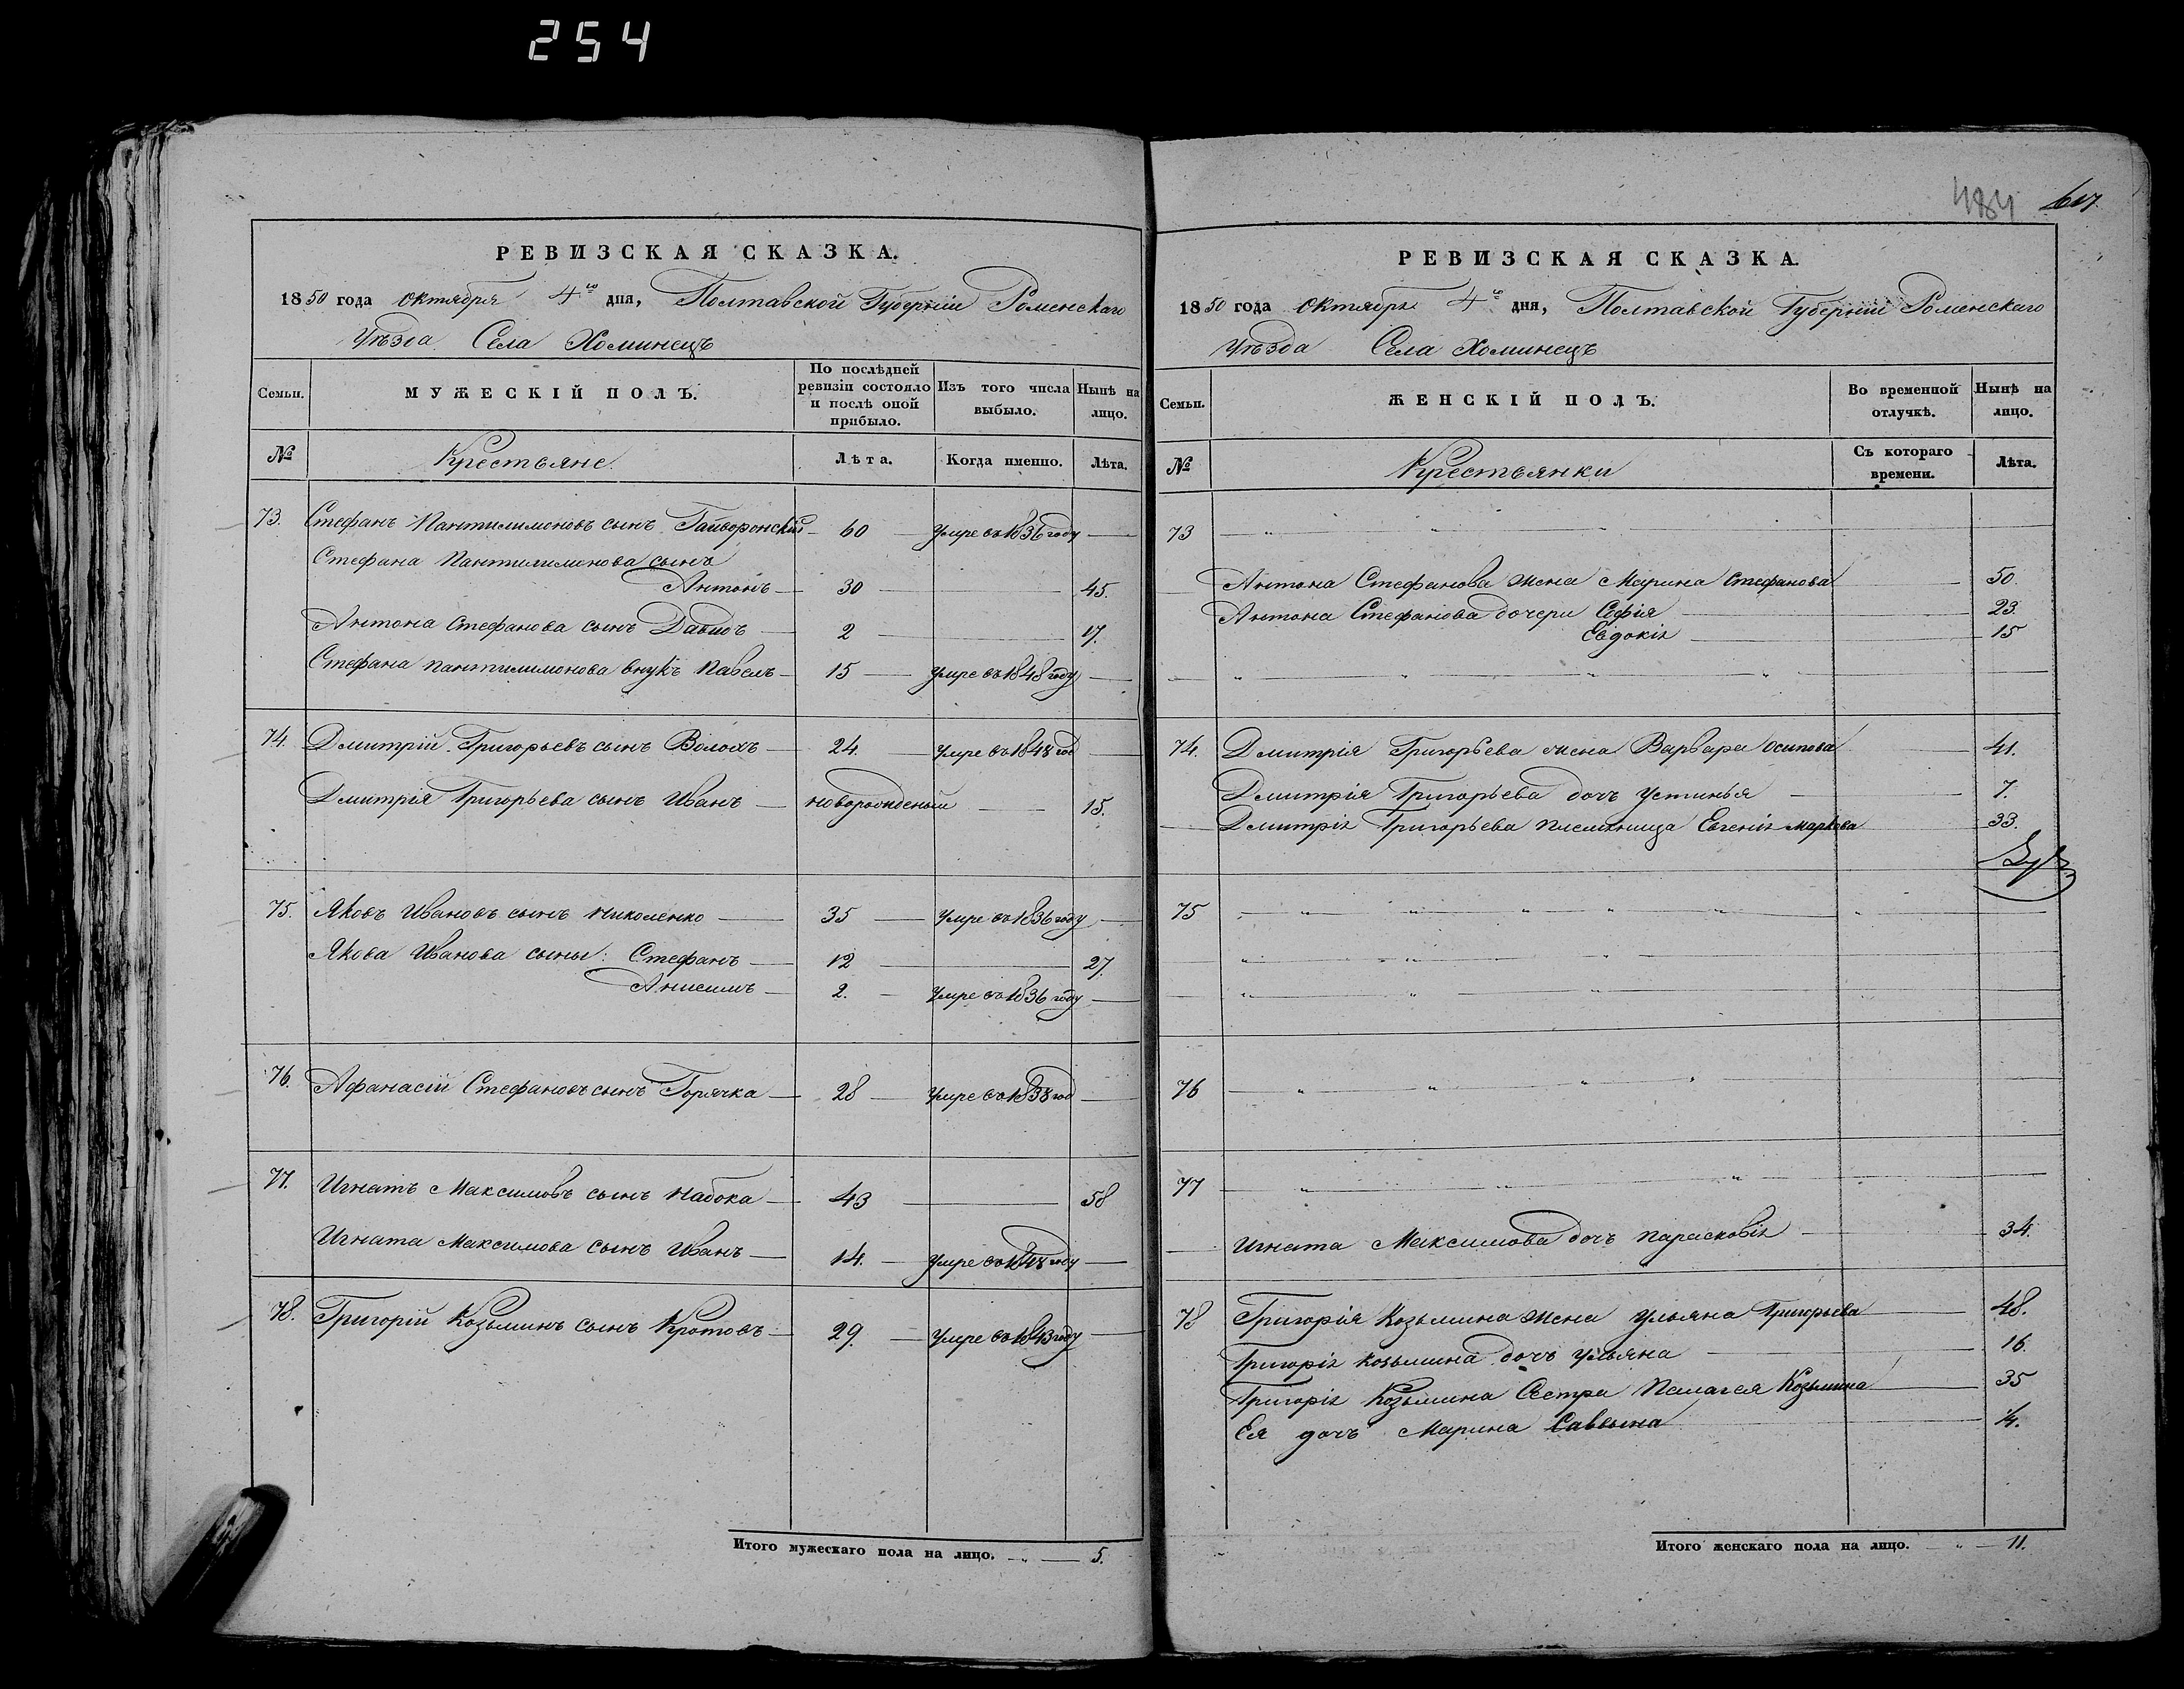 254
РЕВИЗСКАЯ СКАЗКА.
1850 года Октября 4го дня, Полтавской Губерніи Роменскаго
Уѣзда Села Хоминецъ
Семьи. МУЖЕСКІЙ ПОЛЪ. По послѣдней ревизіи состояло и послѣ оной прибыло. Изъ того числа выбыло. Нынѣ на лицо.
№ Крестьяне. Лѣта. Когда именно. Лѣта.
73. Стефанъ Пантилимоновъ сынъ Гайворонскій — 60 — умре въ 1836 году —
Стефана Пантилимонова сынъ
Антонъ — 30 — 45.
Антона Стефанова сынъ Давидъ — 2 — 17.
Стефана Пантилимонова внукъ Павелъ — 15 — умре въ 1848 году —
74. Дмитрій Григорьевъ сынъ Волохъ — 24. — умре въ 1848 год —
Дмитрія Григорьева сынъ Иванъ — новорожденый — 15.
75. Яковъ Ивановъ сынъ Николенко — 35 — умре въ 1836 году —
Якова Иванова сыны: Стефанъ — 12 — 27.
Анисимъ — 2. — умре въ 1836 году —
76. Афанасій Стефановъ сынъ Горячка — 28 — умре въ 1838 год —
77. Игнатъ Максимовъ сынъ Набока — 43 — 58
Игната Максимова сынъ Иванъ — 14. — умре въ 1848 году —
78. Григорій Козьминъ сынъ Кротовъ — 29. — умре въ 1843 году —
Итого мужескаго пола на лицо. — „ — 5.
484 617
РЕВИЗСКАЯ СКАЗКА.
1850 года Октября 4го дня, Полтавской Губерніи Роменскаго
Уѣзда Села Хоминецъ
Семьи. ЖЕНСКІЙ ПОЛЪ. Во временной отлучкѣ. Нынѣ на лицо.
№ Крестьянки Съ котораго времени. Лѣта.
73 — „ — „ —
Антона Стефанова жена Марина Стефанова — 50.
Антона Стефанова дочери Софія — 23.
Евдокія — 15
— „ — „ — „ — „
74. Дмитрія Григорьева жена Варвара Осипова — 41.
Дмитрія Григорьева дочь Устинья — 7.
Дмитрія Григорьева племяница Евгенія Маркова 33.
75 — „ — „ — „ — „ — „ — „ —
— „ — „ — „ —
— „ — „ — „ —
76 — „ — „ — „ — „
77 — „ — „ — „ —
Игната Максимова дочь Парасковія — 34.
78 Григорія Козьмина жена Ульяна Григорьева — 48.
Григорія Козьмина дочь Ульяна — 16.
Григорія Козьмина Сестра Пелагея Козьмина — 35
Ея дочь Марина Саввина — 14.
Итого женскаго пола на лицо. — „ — 11.